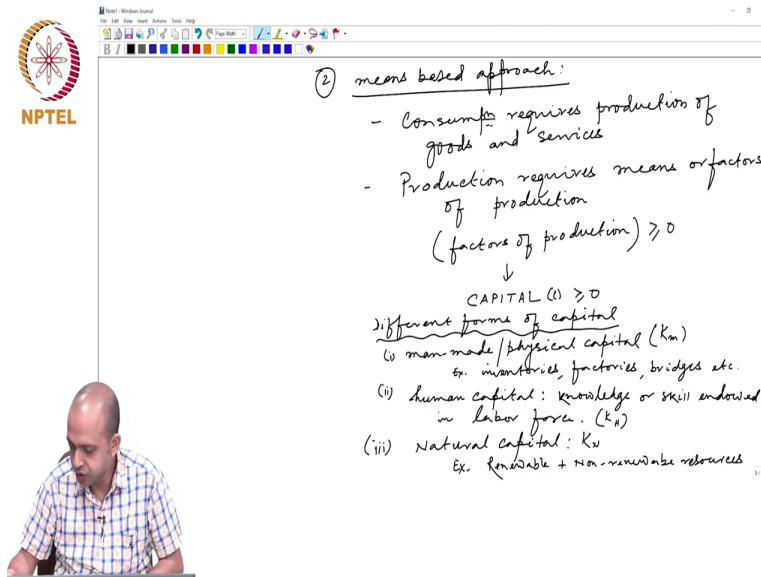 Note1 - Windows Journal
File Edit View Insert Actions Tools Help
Page Width
B I
NPTEL
② means based approach:
- Consumpn requires production of
goods and services
- Production requires means or factors
of production
(factors of production) ≥ 0
↓
CAPITAL (t) ≥ 0
Different forms of capital
(i) man-made/physical capital (Km)
Ex. inventories, factories, bridges etc.
(ii) human capital: knowledge or skill endowed
in labor force. (KH)
(iii) Natural capital: KN
Ex. Renewable + Non-renewable resources